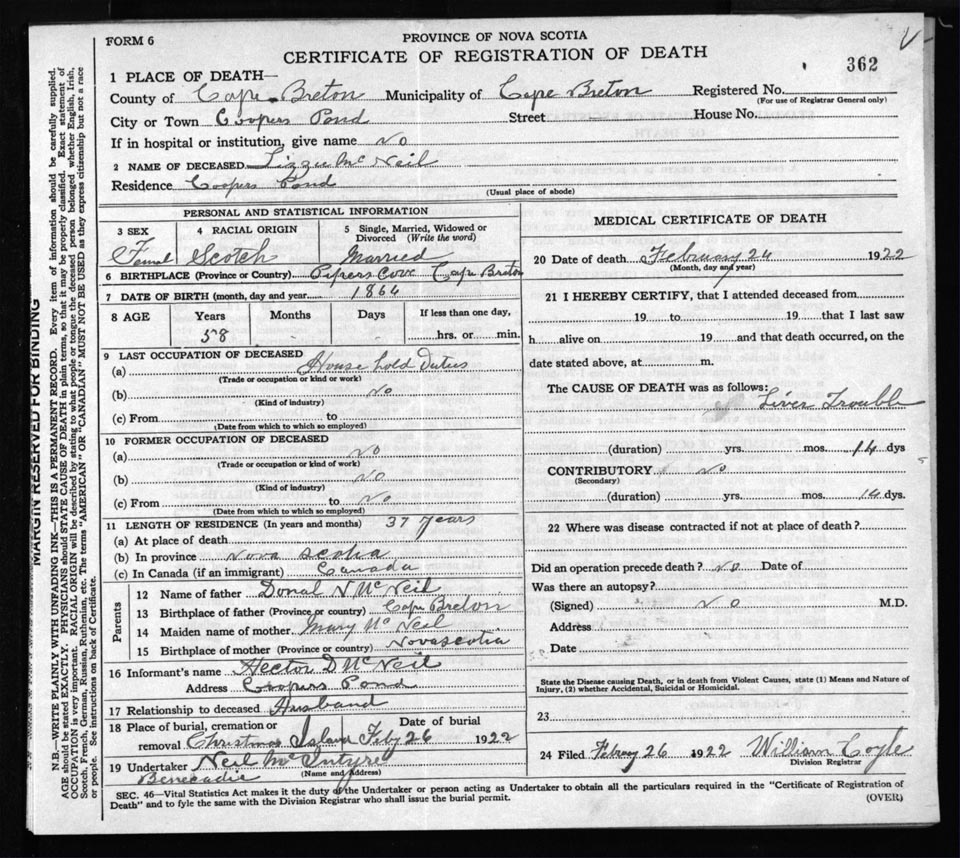 FORM 6
PROVINCE OF NOVA SCOTIA
CERTIFICATE OF REGISTRATION OF DEATH
362
1 PLACE OF DEATH—
County of Cape Breton Municipality of Cape Breton Registered No.
(For use of Registrar General only)
City or Town Coopers Pond Street House No.
If in hospital or institution, give name No
2 NAME OF DECEASED Lizzie McNeil
Residence Coopers Pond
(Usual place of abode)
PERSONAL AND STATISTICAL INFORMATION
3 SEX 4 RACIAL ORIGIN 5 Single, Married, Widowed or Divorced (Write the word)
Femal Scotch Married
6 BIRTHPLACE (Province or Country) Pipers Cove Cape Breton
7 DATE OF BIRTH (month, day and year) 1864
8 AGE Years Months Days If less than one day,
58 hrs. or min.
9 LAST OCCUPATION OF DECEASED
(a) House hold Duties
(Trade or occupation or kind or work)
(b) No
(Kind of industry)
(c) From to
(Date from which to which so employed)
10 FORMER OCCUPATION OF DECEASED
(a) No
(Trade or occupation or kind of work)
(b) No
(Kind of industry)
(c) From to No
(Date from which to which so employed)
11 LENGTH OF RESIDENCE (In years and months) 37 years
(a) At place of death
(b) In province Nova Scotia
(c) In Canada (if an immigrant) Canada
Parents
12 Name of father Donal N McNeil
13 Birthplace of father (Province or country) Cape Breton
14 Maiden name of mother Mary McNeil
15 Birthplace of mother (Province or country) Novascotia
16 Informant's name Hector D McNeil
Address Coopers Pond
17 Relationship to deceased Husband
18 Place of burial, cremation or removal Christmas Island Date of burial Feby 26 1922
19 Undertaker Neil McIntyre
(Name and Address)
Benecadie
MEDICAL CERTIFICATE OF DEATH
20 Date of death February 24 1922
(Month, day and year)
21 I HEREBY CERTIFY, that I attended deceased from
19 to 19 that I last saw
h alive on 19 and that death occurred, on the
date stated above, at m.
The CAUSE OF DEATH was as follows:
Liver Trouble
(duration) yrs. mos. 14 dys
CONTRIBUTORY No
(Secondary)
(duration) yrs. mos. 14 dys.
22 Where was disease contracted if not at place of death?
Did an operation precede death? No Date of
Was there an autopsy?
(Signed) No M.D.
Address
Date
State the Disease causing Death, or in death from Violent Causes, state (1) Means and Nature of
Injury, (2) whether Accidental, Suicidal or Homicidal.
23
24 Filed Febuay 26 1922 William Coyle
Division Registrar
SEC. 46—Vital Statistics Act makes it the duty of the Undertaker or person acting as Undertaker to obtain all the particulars required in the "Certificate of Registration of
Death" and to fyle the same with the Division Registrar who shall issue the burial permit.
(OVER)
MARGIN RESERVED FOR BINDING
N.B.—WRITE PLAINLY WITH UNFADING INK—THIS IS A PERMANENT RECORD. Every item of information should be carefully supplied.
AGE should be stated EXACTLY. PHYSICIANS should STATE CAUSE OF DEATH in plain terms, so that it may be properly classified. Exact statement of
OCCUPATION is very important. RACIAL ORIGIN will be described by stating to what people or tongue the deceased person belonged, whether English, Irish,
Scotch, French, German, Russian, Ruthenian, etc. The terms "AMERICAN" OR "CANADIAN" MUST NOT BE USED as they express citizenship but not a race
or people. See instructions on back of Certificate.